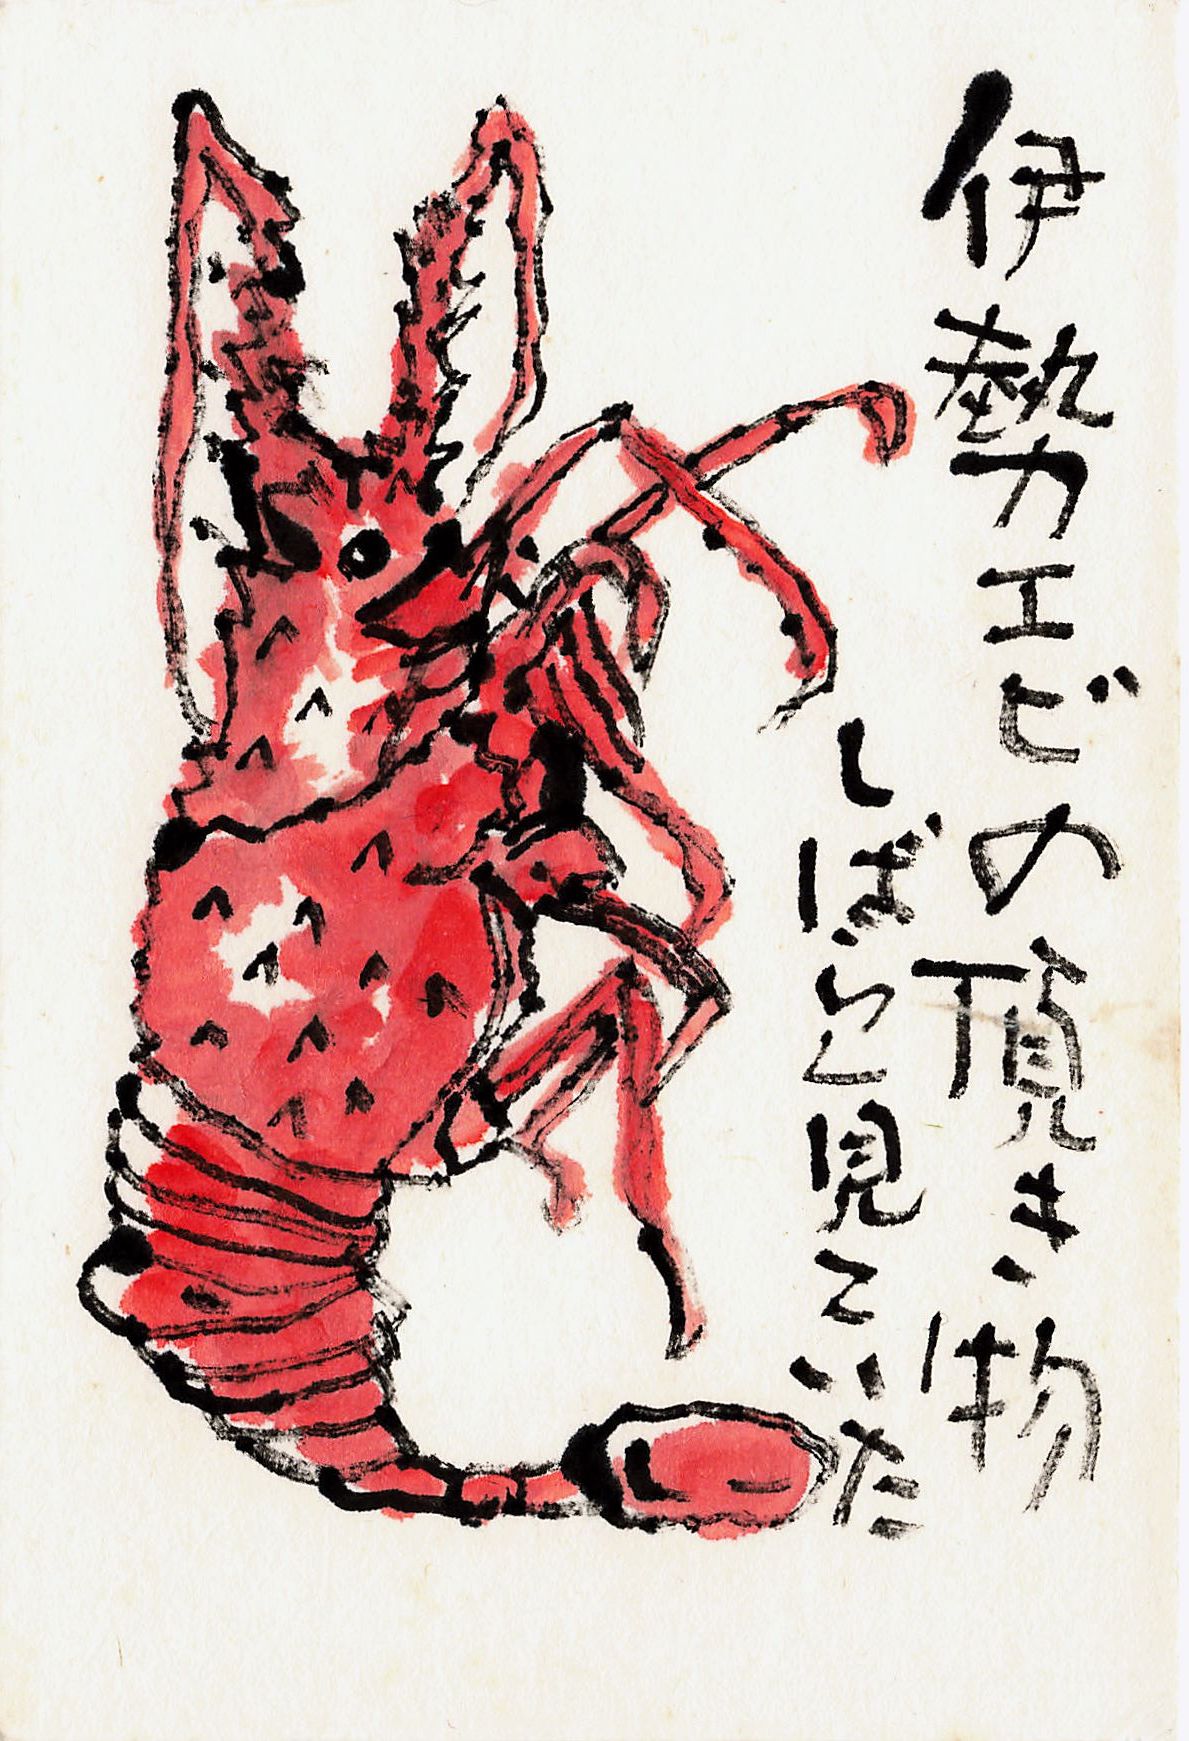 伊勢エビの頂き物
しばらく見ていた